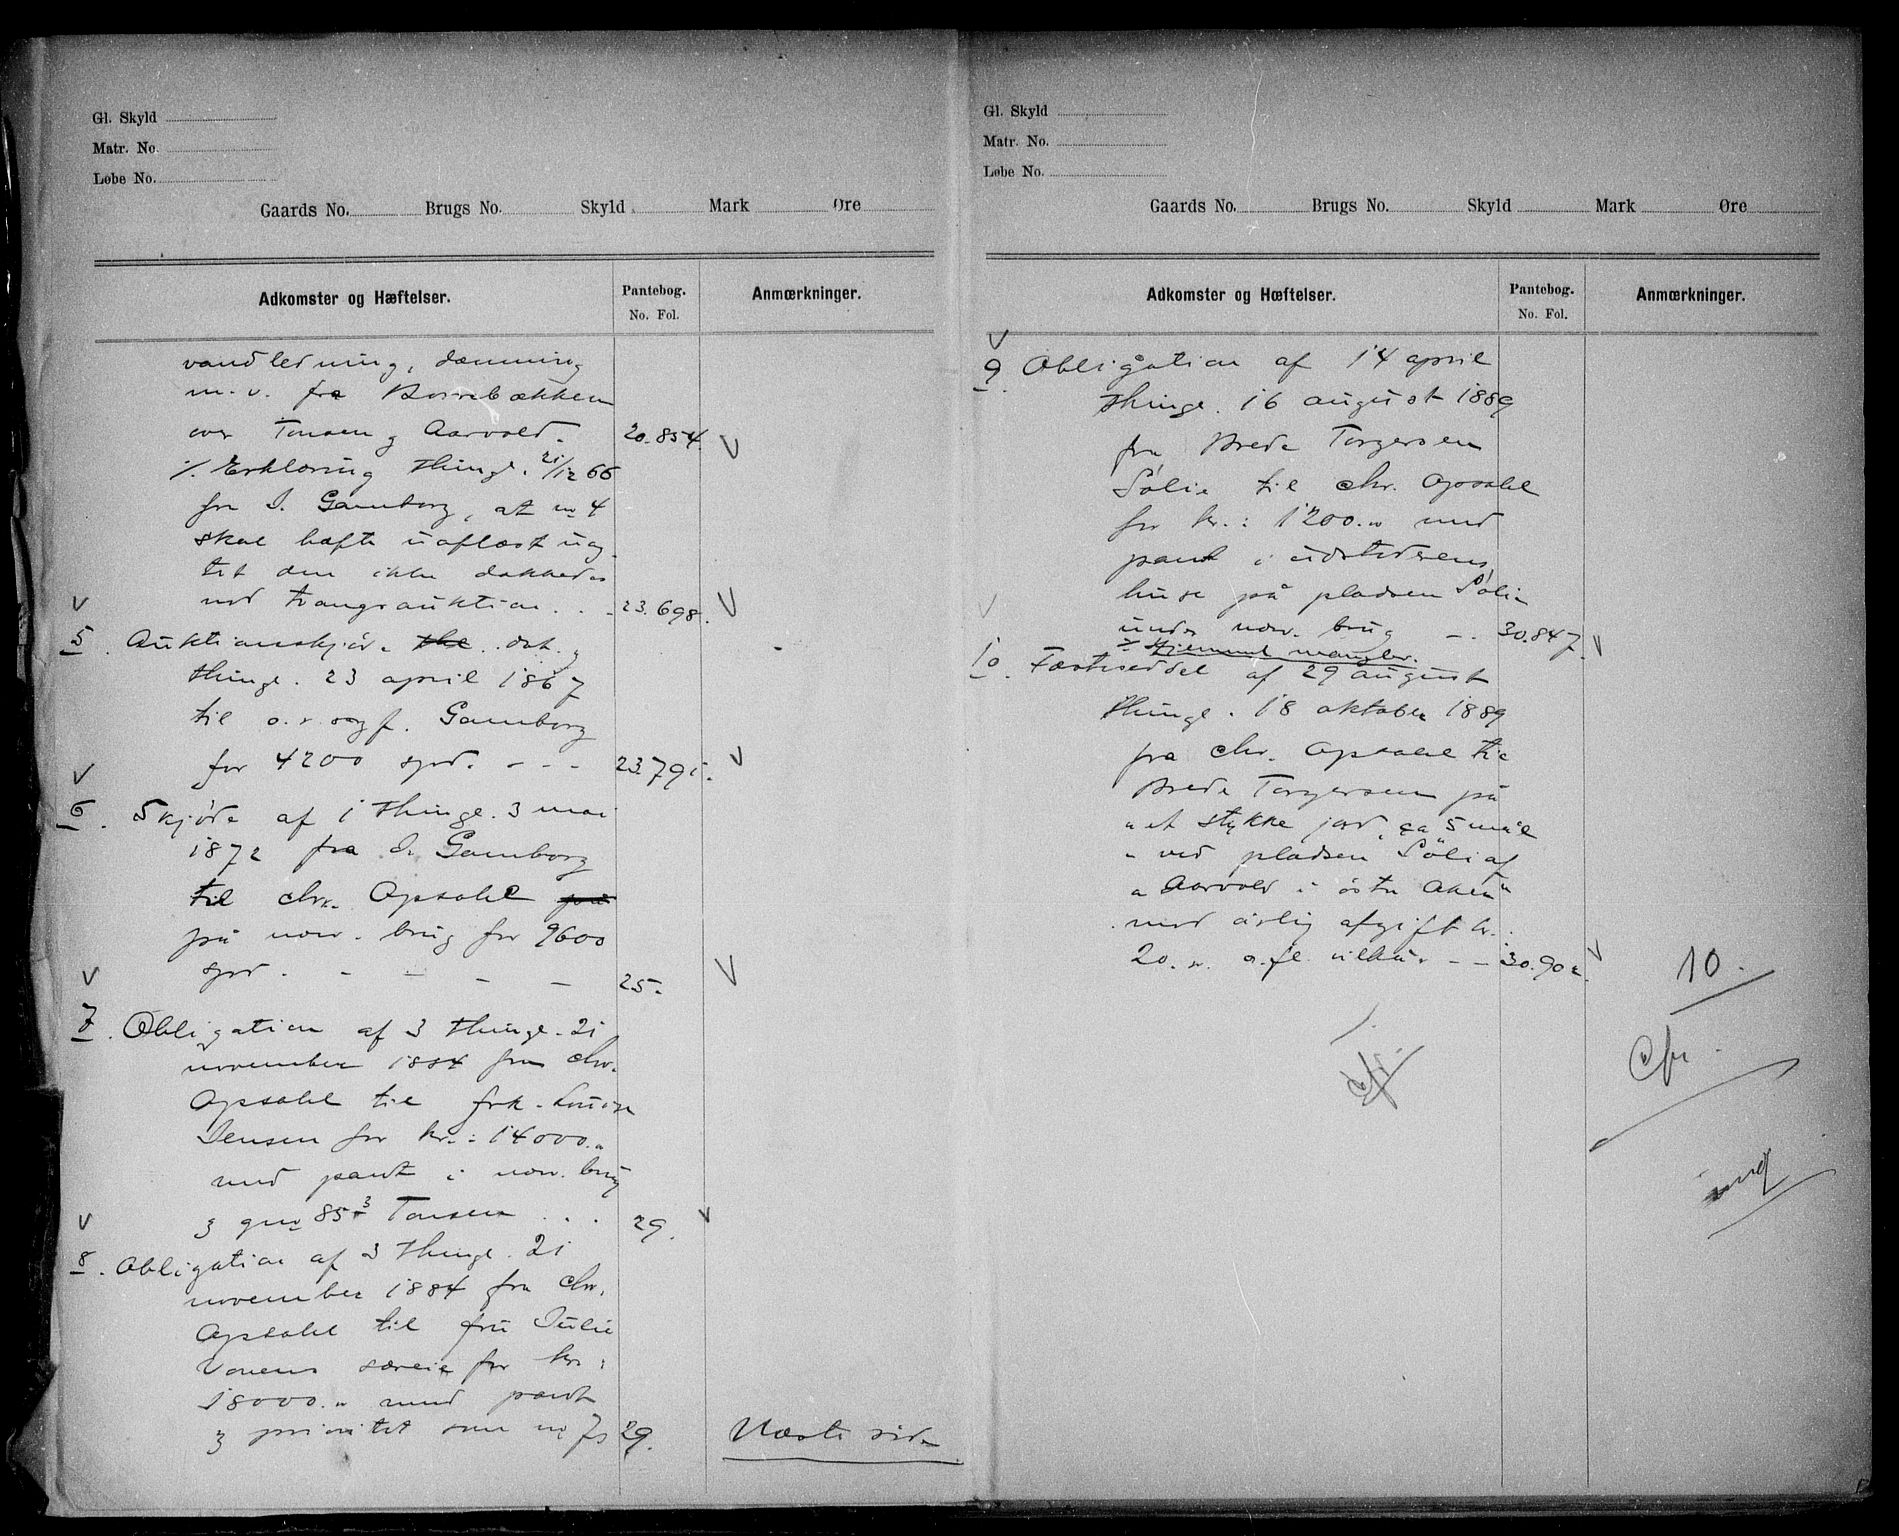 Gl. Skyld
Matr. No.
Løbe No.
Gaards No. Brugs No. Skyld Mark Øre
Adkomster og Hæftelser. Pantebog. Anmærkninger.
No. Fol.
vandledning, dæmning
m. v. fra
over Tonsen og Aarvold. 20.854.
./. Erklæring thingl. 21/12 66
fra J. Gamborg, at no 4
skal hæfte uaflæst uag-
tet den ikke dækkedes
ved tvangsauktion . . . 23.698.
5. Auktionsskjøde dat. og
thingl. 23 april 1867
til o.r.sagf. Gamborg
for 4200 spd. - - - 23.791.
6. Skjøde af 1 thingl. 3 mai
1872 fra J. Gamborg
til chr. Opsahl
på nærv. brug for 9600
spd. - - - - 25.
7. Obligation af 3 thingl. 21
november 1884 fra chr.
Opsahl til frk. Louise
Jensen for kr.: 14000.„
med pant i nærv. brug
og gno 85 3 Tonsen . . . 29.
8. Obligation af 3 thingl. 21
november 1884 fra chr.
Opsahl til fru Julie
særeie for kr.:
18000.„ med pant
og prioritet som no 7 29.
Næste side
Gl. Skyld
Matr. No.
Løbe No.
Gaards No. Brugs No. Skyld Mark Øre
Adkomster og Hæftelser. Pantebog. Anmærkninger.
No. Fol.
9. Obligation af 14 april
thingl. 16 august 1889
fra Brede Torgersen
Sølie til chr. Opsahl
for kr.: 1200.„ med
pant i udstederens
huse på pladsen Sølie
under nærv. brug - . 30.847.
Hjemmel mangler.
10. Fæsteseddel af 29 august
thingl. 18 oktober 1889
fra chr. Opsahl til
Brede Torgersen på
„et stykke jord, ca 5 mål
„ ved pladsen Søli af
„ Aarvold i østre Aker„
med årlig afgift kr.
20.„. o.fl. vilkår - - 30.902.
10.
Cfr.
Cfr.